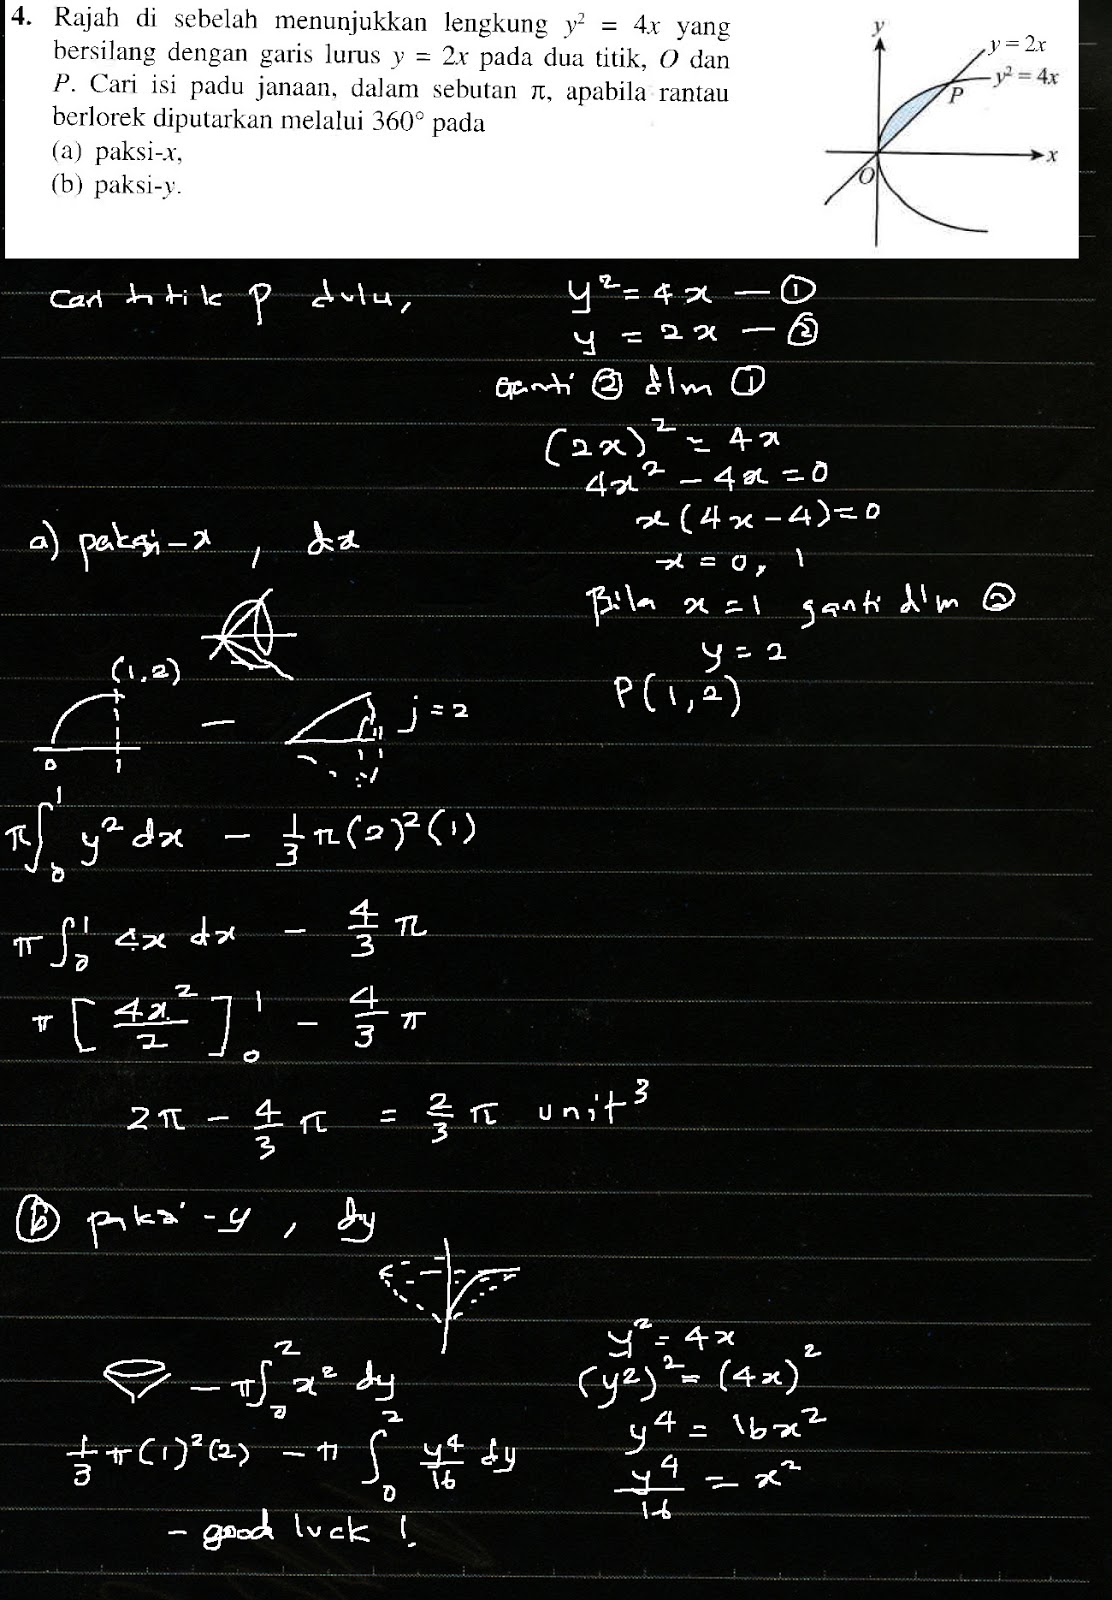 4. Rajah di sebelah menunjukkan lengkung y² = 4x yang
bersilang dengan garis lurus y = 2x pada dua titik, O dan
P. Cari isi padu janaan, dalam sebutan π, apabila rantau
berlorek diputarkan melalui 360° pada
(a) paksi-x,
(b) paksi-y.
y
y = 2x
y² = 4x
P
x
O
cari titik P dulu,
y² = 4x — ①
y = 2x — ②
Ganti ② dlm ①
(2x)² = 4x
4x² - 4x = 0
x(4x - 4) = 0
x = 0, 1
Bila x = 1 ganti dlm ②
y = 2
P(1,2)
a) paksi-x, dx
(1,2)
0 1
—
j = 2
1
π∫₀¹ y² dx - 1/3 π(2)²(1)
π∫₀¹ 4x dx - 4/3 π
π[4x²/2]₀¹ - 4/3 π
2π - 4/3 π = 2/3 π unit³
ⓑ paksi-y, dy
- π∫₀² x² dy
1/3 π(1)²(2) - π∫₀² y⁴/16 dy
- good luck!
y² = 4x
(y²)² = (4x)²
y⁴ = 16x²
y⁴/16 = x²